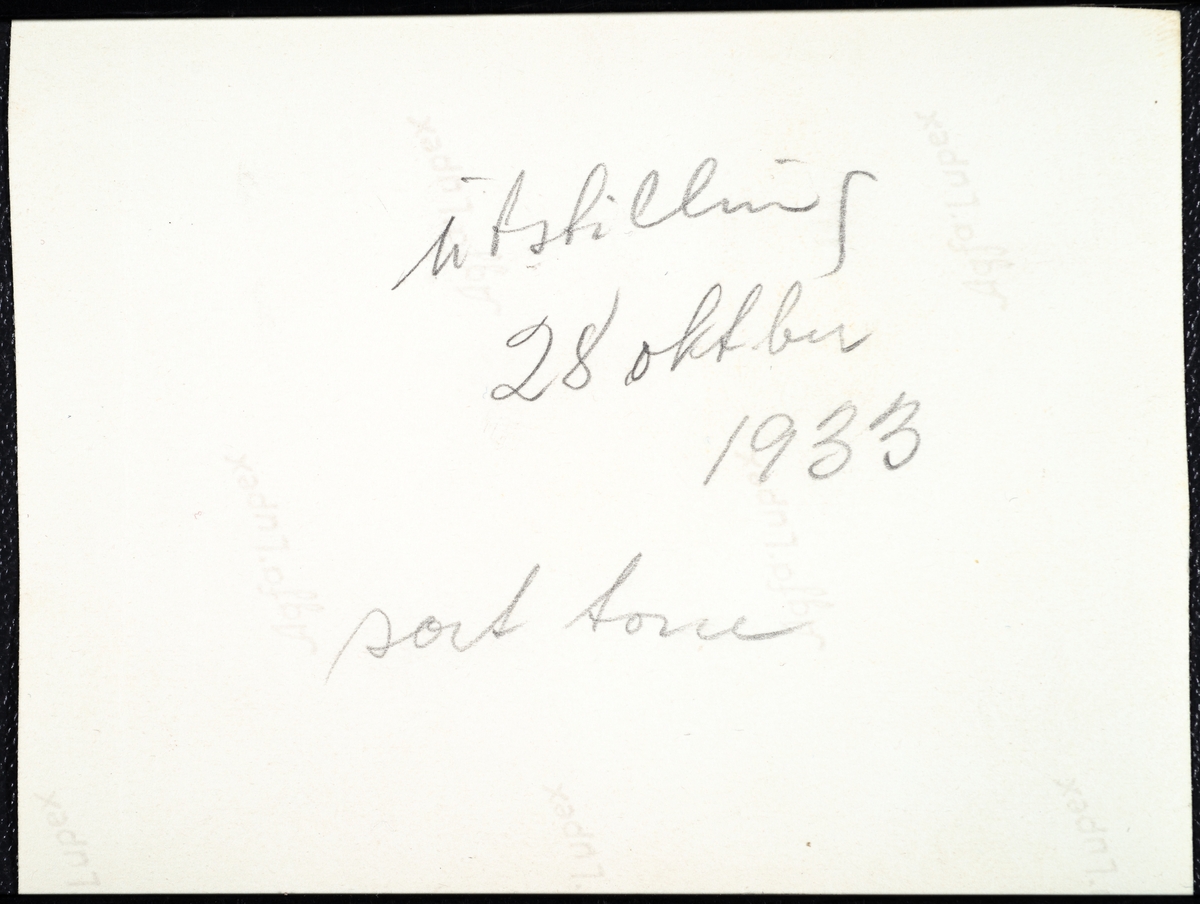 utstilling
28 oktber
1933
sort tone
Agfa-Lupex
Agfa-Lupex
Agfa-Lupex
Agfa-Lupex
Lupex
Lupex
Lupex